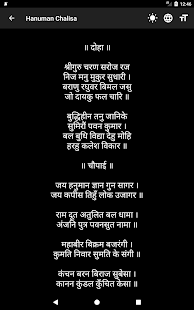 12:46
Hanuman Chalisa
॥ दोहा ॥
श्रीगुरु चरण सरोज रज
निज मनु मुकुर सुधारी ।
बरणु रघुवर बिमल जसु
जो दायकु फल चारि ॥
बुद्धिहीन तनु जानिके
सुमिरों पवन कुमार ।
बल बुधि विद्या देहु मोहि
हरहु कलेश विकार ॥
॥ चौपाई ॥
जय हनुमान ज्ञान गुन सागर ।
जय कपीस तिहुँ लोक उजागर ॥
राम दूत अतुलित बल धामा ।
अंजनि पुत्र पवनसुत नामा ॥
महाबीर बिक्रम बजरंगी ।
कुमति निवार सुमति के संगी ॥
कंचन बरन बिराज सुबेसा ।
कानन कुंडल कुँचित केसा ॥